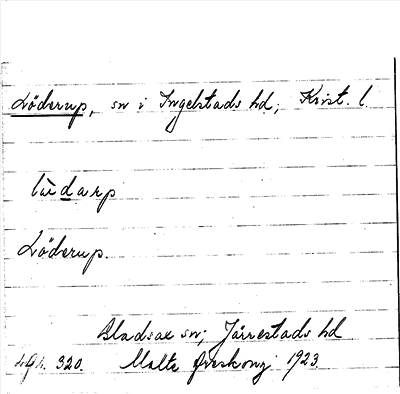 Löderup, sn i Ingelstads hd; Krist. l.
lüdarp
Löderup.
Gladsax sn; Järrestads hd
320. Malte 1923.